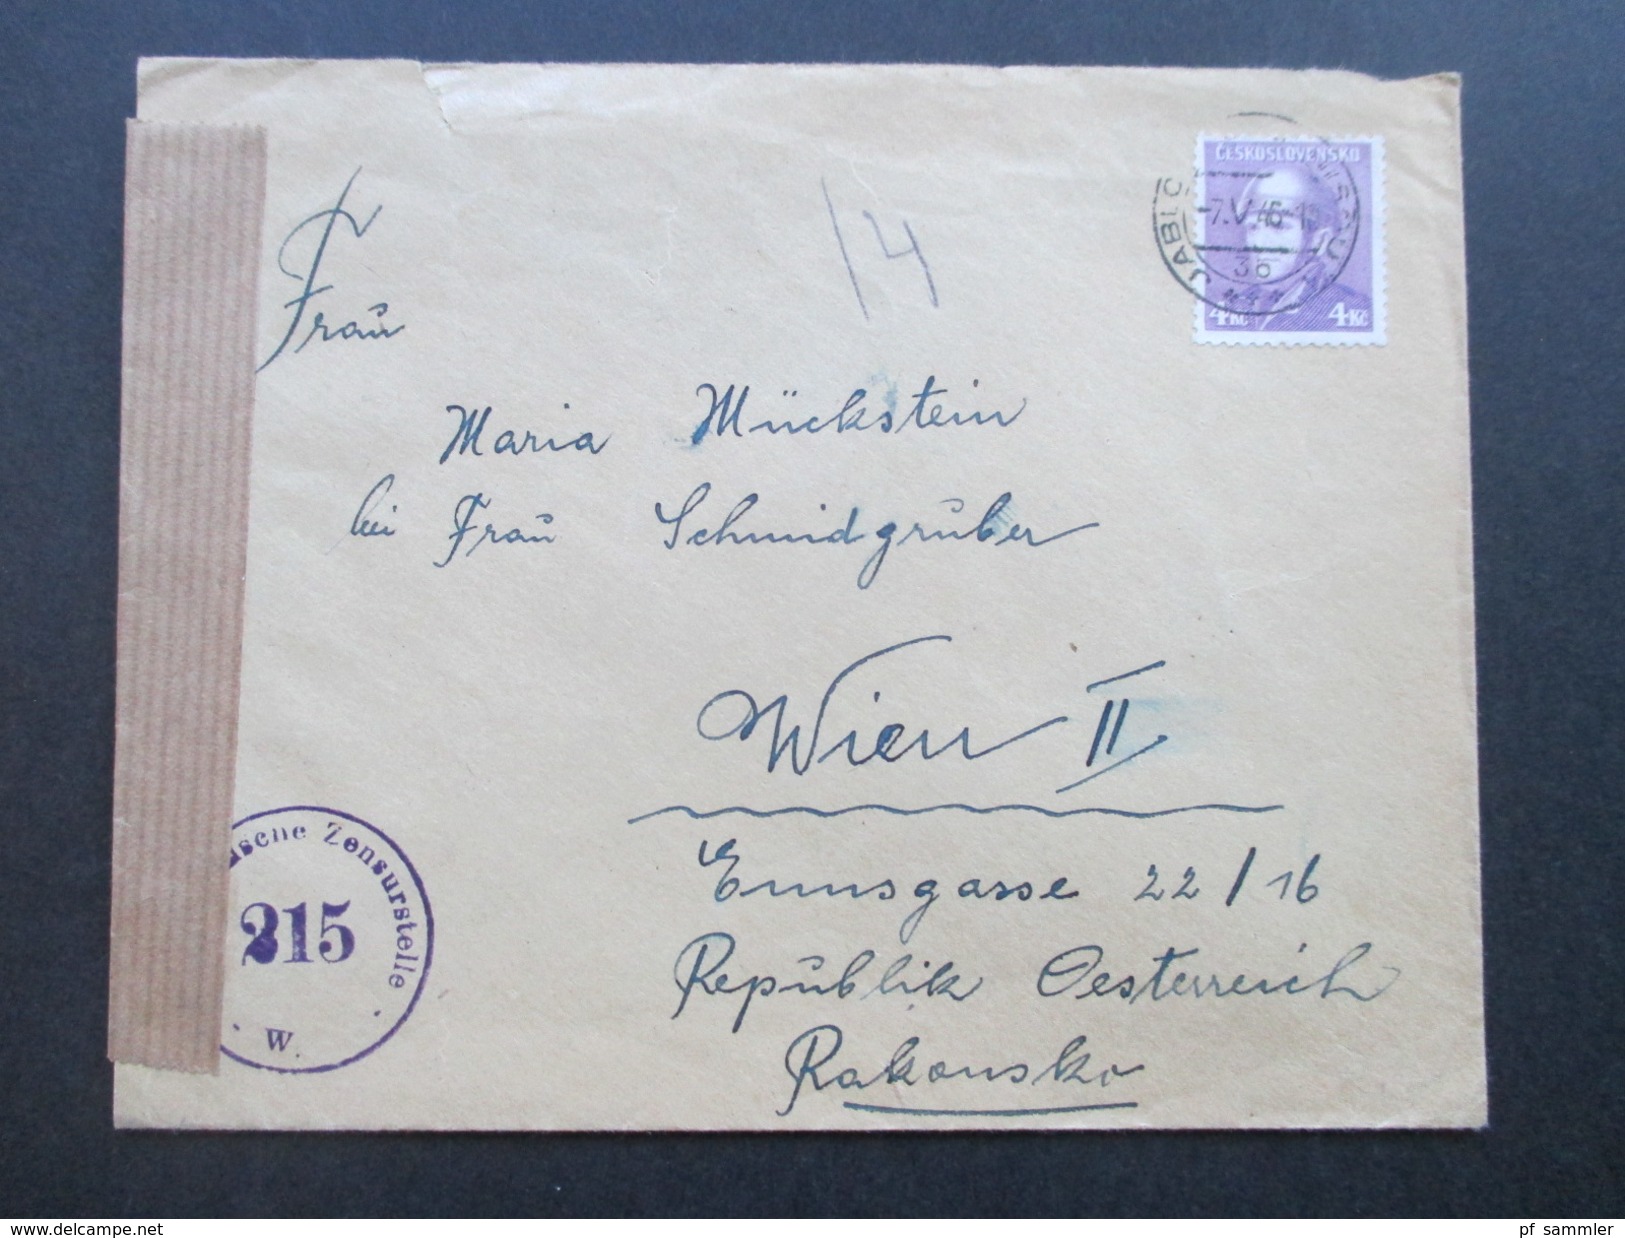 ČESKOSLOVENSKO
-7.V.46-1
3b
4Kč 4Kč
14
Frau
Maria Mückstein
bei Frau Schmidgruber
Wien II
Ennsgasse 22/16
Republik Oesterreich
Rakousko
sche Zensurstelle
215
W.
www.delcampe.net
pf_sammler